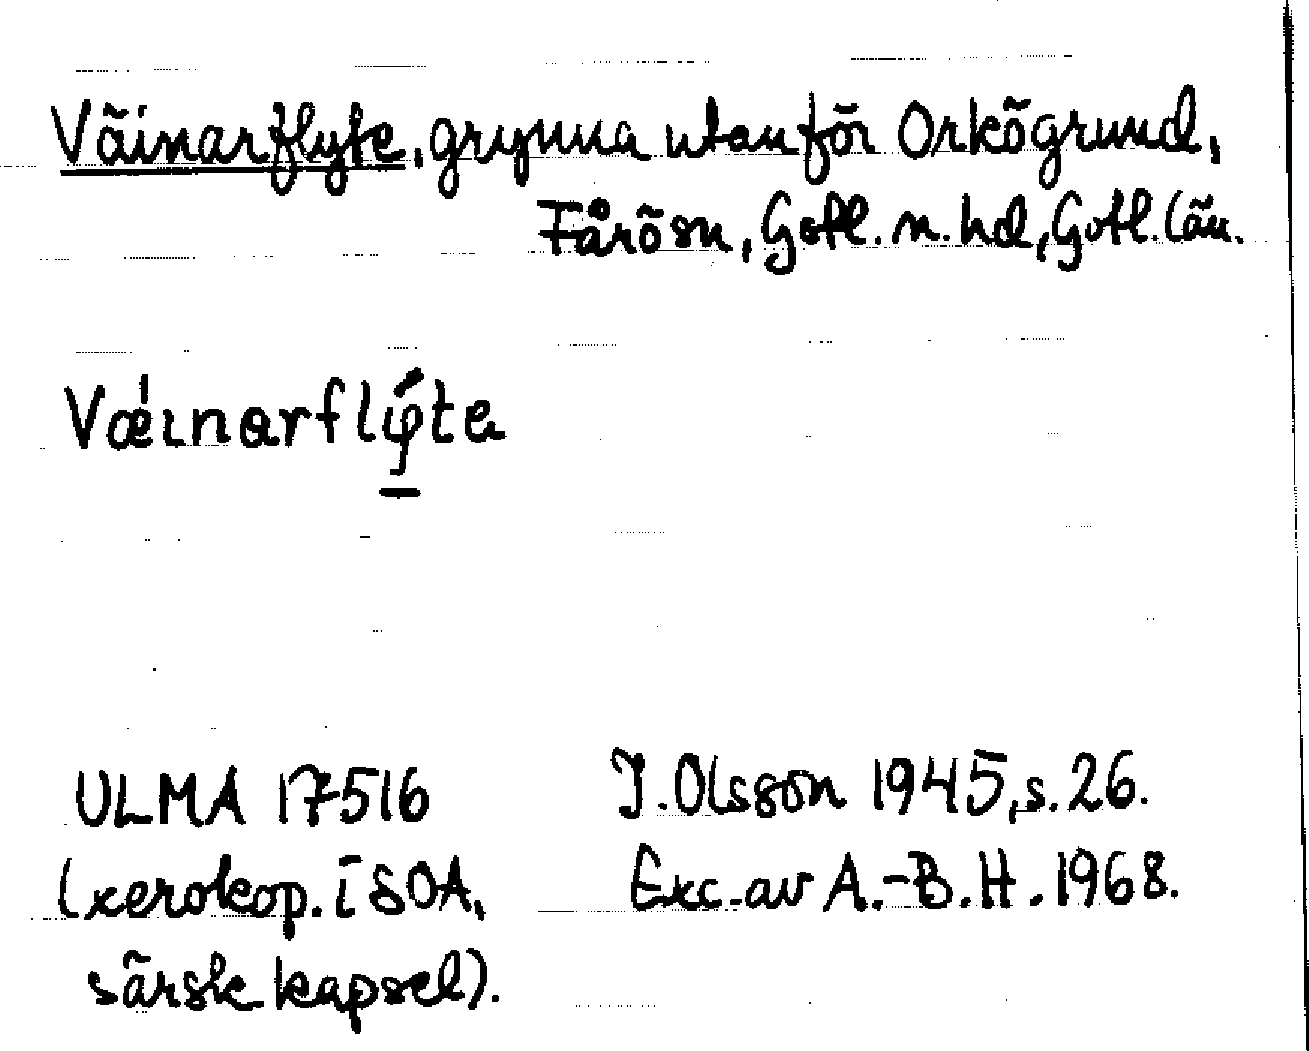 Väinarflyte, grynna utanför Orkögrund,
Fårösn, Gotl. n. hd, Gotl. län.
Vǽınarflẏ́te
ULMA 17516
(xerokop. i SOA,
särsk kapsel).
J. Olsson 1945, s. 26.
Exc. av A.-B. H. 1968.